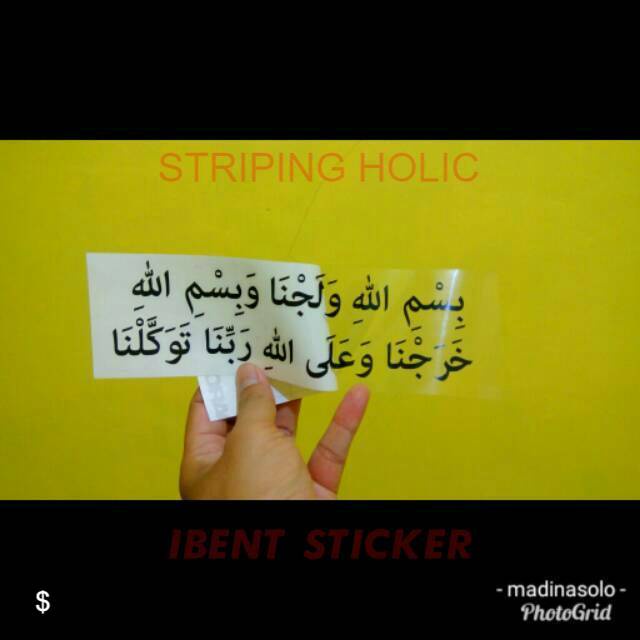 STRIPING HOLIC
بِسْمِ اللهِ وَلَجْنَا وَبِسْمِ اللهِ
خَرَجْنَا وَعَلَى اللهِ رَبِّنَا تَوَكَّلْنَا
IBENT STICKER
$
- madinasolo -
PhotoGrid